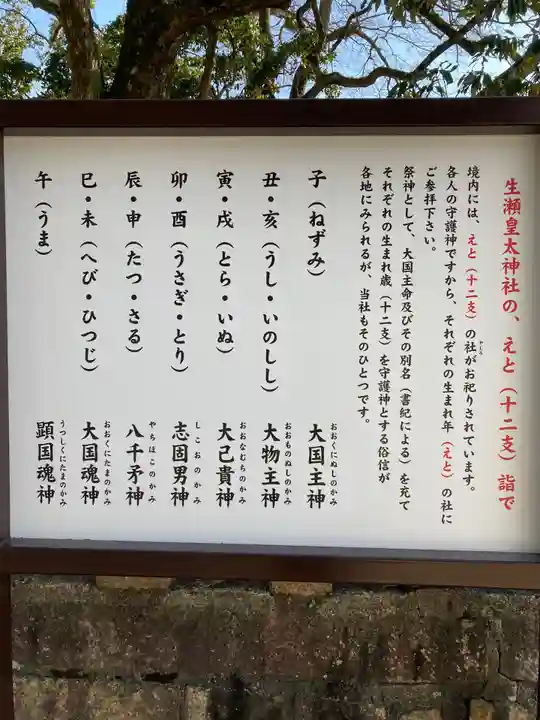 生瀬皇太神社の、えと（十二支）詣で
境内には、えと（十二支）の社がお祀りされています。
やしろ
各人の守護神ですから、それぞれの生まれ年（えと）の社に
ご参拝下さい。
祭神として、大国主命及びその別名（書紀による）を充て
それぞれの生まれ歳（十二支）を守護神とする俗信が
各地にみられるが、当社もそのひとつです。
子（ねずみ） 大国主神
おおくにぬしのかみ
丑・亥（うし・いのしし） 大物主神
おおものぬしのかみ
寅・戌（とら・いぬ） 大己貴神
おおなむちのかみ
卯・酉（うさぎ・とり） 志固男神
しこおのかみ
辰・申（たつ・さる） 八千矛神
やちほこのかみ
巳・未（へび・ひつじ） 大国魂神
おおくにたまのかみ
午（うま） 顕国魂神
うつしくにたまのかみ